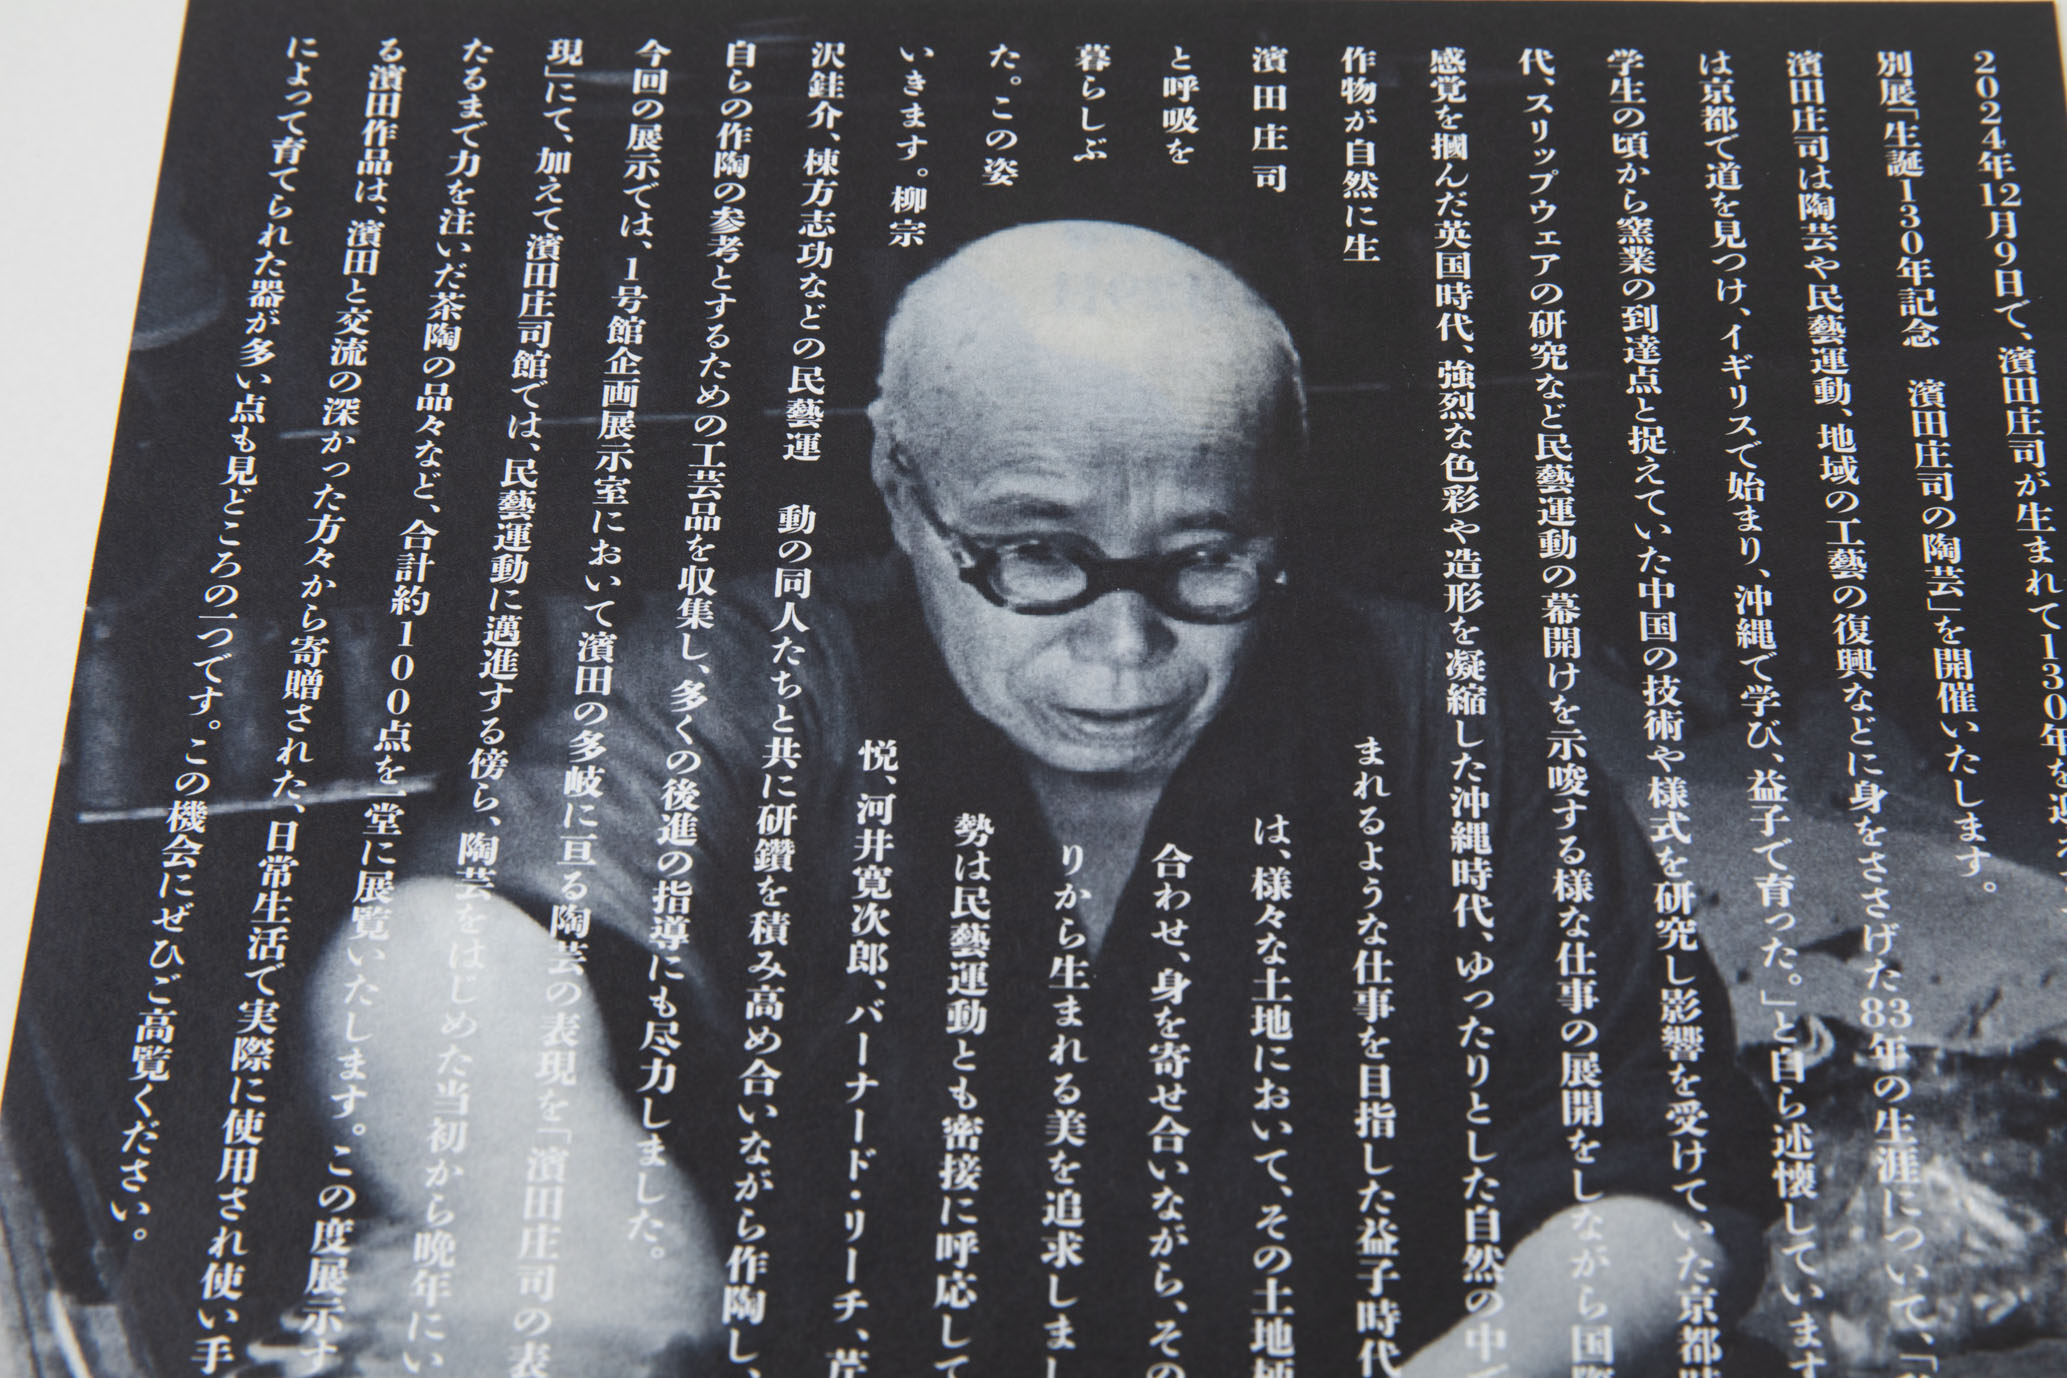 2024年12月9日で、濱田庄司が生まれて130年を迎
別展「生誕130年記念　濱田庄司の陶芸」を開催いたします。
濱田庄司は陶芸や民藝運動、地域の工藝の復興などに身をささげた83年の生涯について、「
は京都で道を見つけ、イギリスで始まり、沖縄で学び、益子で育った。」と自ら述懐しています
学生の頃から窯業の到達点と捉えていた中国の技術や様式を研究し影響を受けていた京都時
代、スリップウェアの研究など民藝運動の幕開けを示唆する様な仕事の展開をしながら国際
感覚を摑んだ英国時代、強烈な色彩や造形を凝縮した沖縄時代、ゆったりとした自然の中で
作物が自然に生まれるような仕事を目指した益子時代
濱田庄司は、様々な土地において、その土地柄
と呼吸を合わせ、身を寄せ合いながら、その
暮らしぶりから生まれる美を追求しまし
た。この姿勢は民藝運動とも密接に呼応して
いきます。柳宗悦、河井寛次郎、バーナード・リーチ、芹
沢銈介、棟方志功などの民藝運　動の同人たちと共に研鑽を積み高め合いながら作陶し、
自らの作陶の参考とするための工芸品を収集し、多くの後進の指導にも尽力しました。
今回の展示では、1号館企画展示室において濱田の多岐に亘る陶芸の表現を「濱田庄司の表
現」にて、加えて濱田庄司館では、民藝運動に邁進する傍ら、陶芸をはじめた当初から晩年にい
たるまで力を注いだ茶陶の品々など、合計約100点を一堂に展覧いたします。この度展示す
る濱田作品は、濱田と交流の深かった方々から寄贈された、日常生活で実際に使用され使い手
によって育てられた器が多い点も見どころの一つです。この機会にぜひご高覧ください。